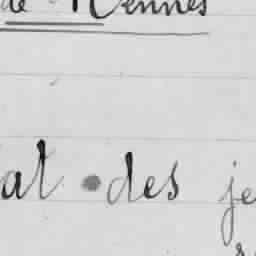 de Rennes
at des je